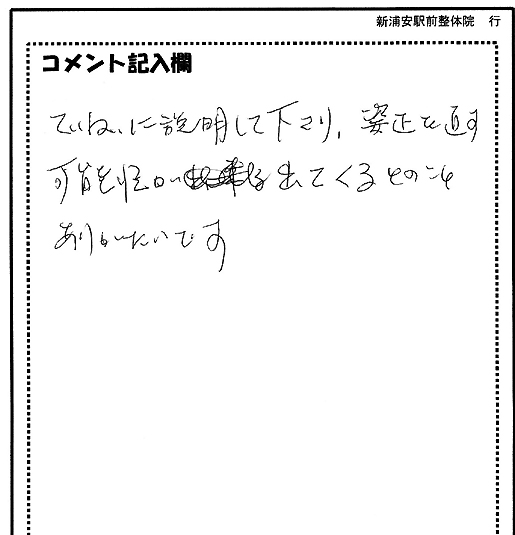 新浦安駅前整体院 行
コメント記入欄
ていねいに説明して下さり、姿正を直す
可能性が出てくるとのこと
ありがたいです